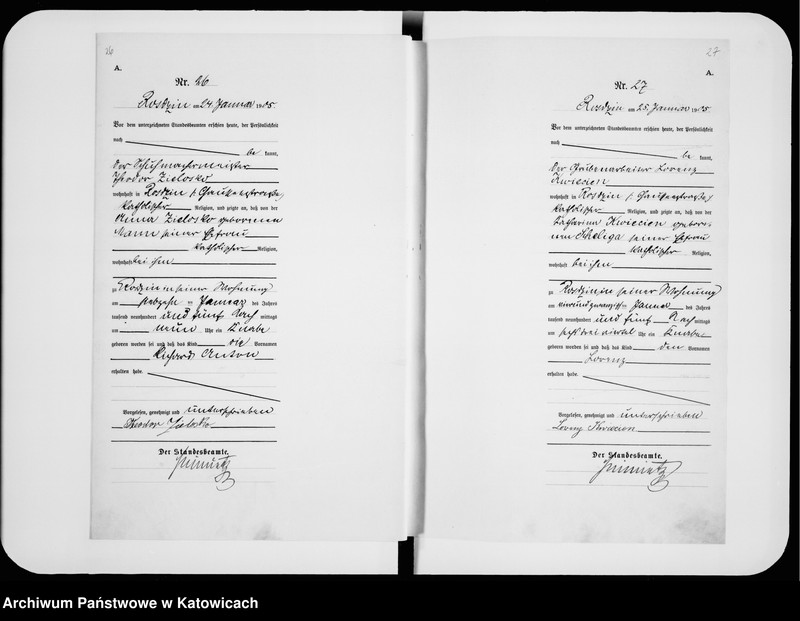 26
A.
Nr. 26
Rosdzin am 24. Januar 1905
Vor dem unterzeichneten Standesbeamten erschien heute, der Persönlichkeit
nach
be kannt,
der Schuhmachermeister
Theodor Zielosko
wohnhaft in Rosdzin
katholischer Religion, und zeigte an, daß von der
Anna Zielosko geborenen
Mann seiner Ehefrau
katholischer Religion,
wohnhaft bei ihm
zu Rosdzin in seiner Wohnung
am siebzehnten Januar des Jahres
tausend neunhundert und fünf Nach mittags
um neun Uhr ein Knabe
geboren worden sei und daß das Kind die Vornamen
Richard Anton
erhalten habe.
Vorgelesen, genehmigt und unterschrieben
Theodor Zielosko
Der Standesbeamte.
27
A.
Nr. 27
Rosdzin am 25. Januar 1905
Vor dem unterzeichneten Standesbeamten erschien heute, der Persönlichkeit
nach
be kannt,
der Grubenarbeiter Lorenz
Kwiecien
wohnhaft in Rosdzin
katholischer Religion, und zeigte an, daß von der
Katharina Kwiecien gebore-
nen Scheliga seiner Ehefrau
katholischer Religion,
wohnhaft bei ihm
zu Rosdzin in seiner Wohnung
am einundzwanzigsten Januar des Jahres
tausend neunhundert und fünf Nach mittags
um drei viertel Uhr ein Knabe
geboren worden sei und daß das Kind den Vornamen
Lorenz
erhalten habe.
Vorgelesen, genehmigt und unterschrieben
Lorenz Kwiecien
Der Standesbeamte.
Archiwum Państwowe w Katowicach